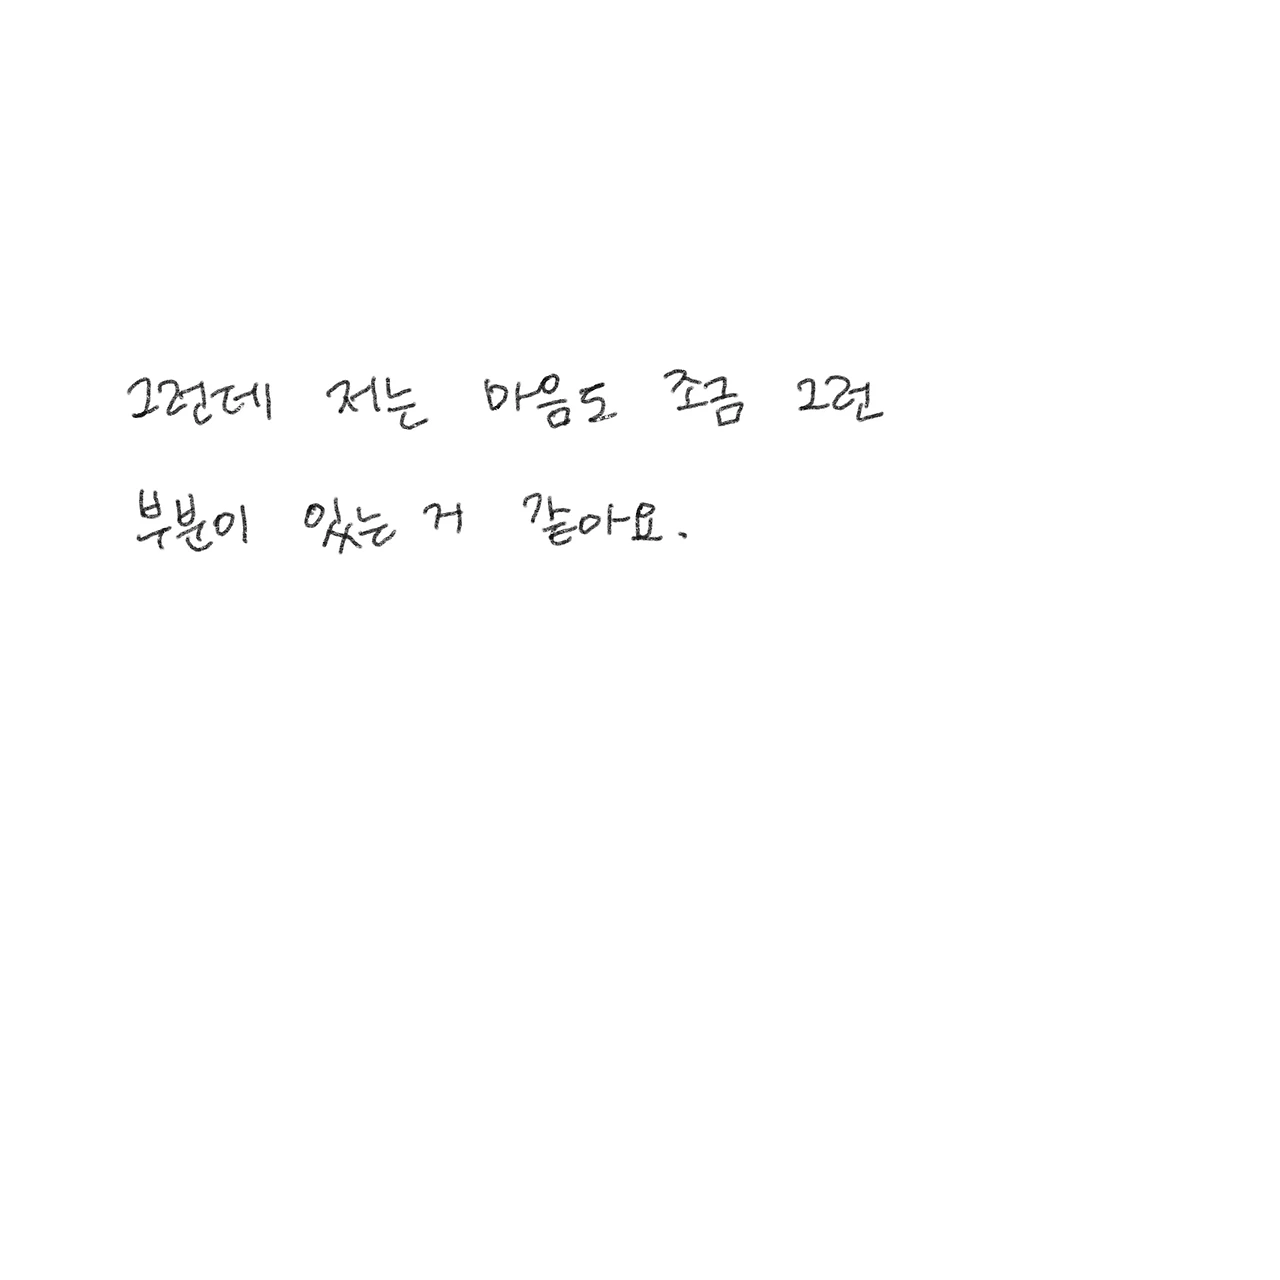 그런데 저는 마음도 조금 그런
부분이 있는 거 같아요.